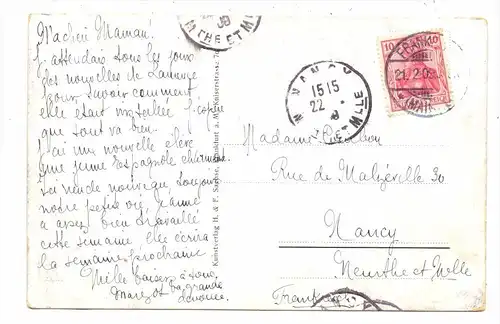 Ma chère Maman!
J'attendais tous les jours
des nouvelles de
pour savoir comment
elle était installée. J'espère
que tout va bien.
J'ai une nouvelle élève
une jeune Espagnole charmante.
Ici rien de nouveau, toujours
notre petite vie. Jeanne
a assez bien travaillé
cette semaine, elle écrira
la semaine prochaine
Mille baisers à tous,
Margot ta grande
Kunstverlag H. & F. Schaar, Frankfurt a. M., Kaiserstrasse
08
THE ET M
NANCY
15 15
22
08
MTHE ET MLLE
10
FRANKF
21.2.08
(MAIN)
Madame
Rue de Malzéville 30
Nancy
Meurthe et Moselle
Frankreich